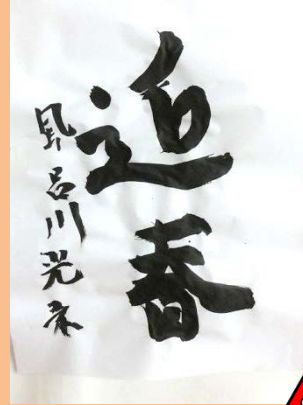 迎春
風呂川光